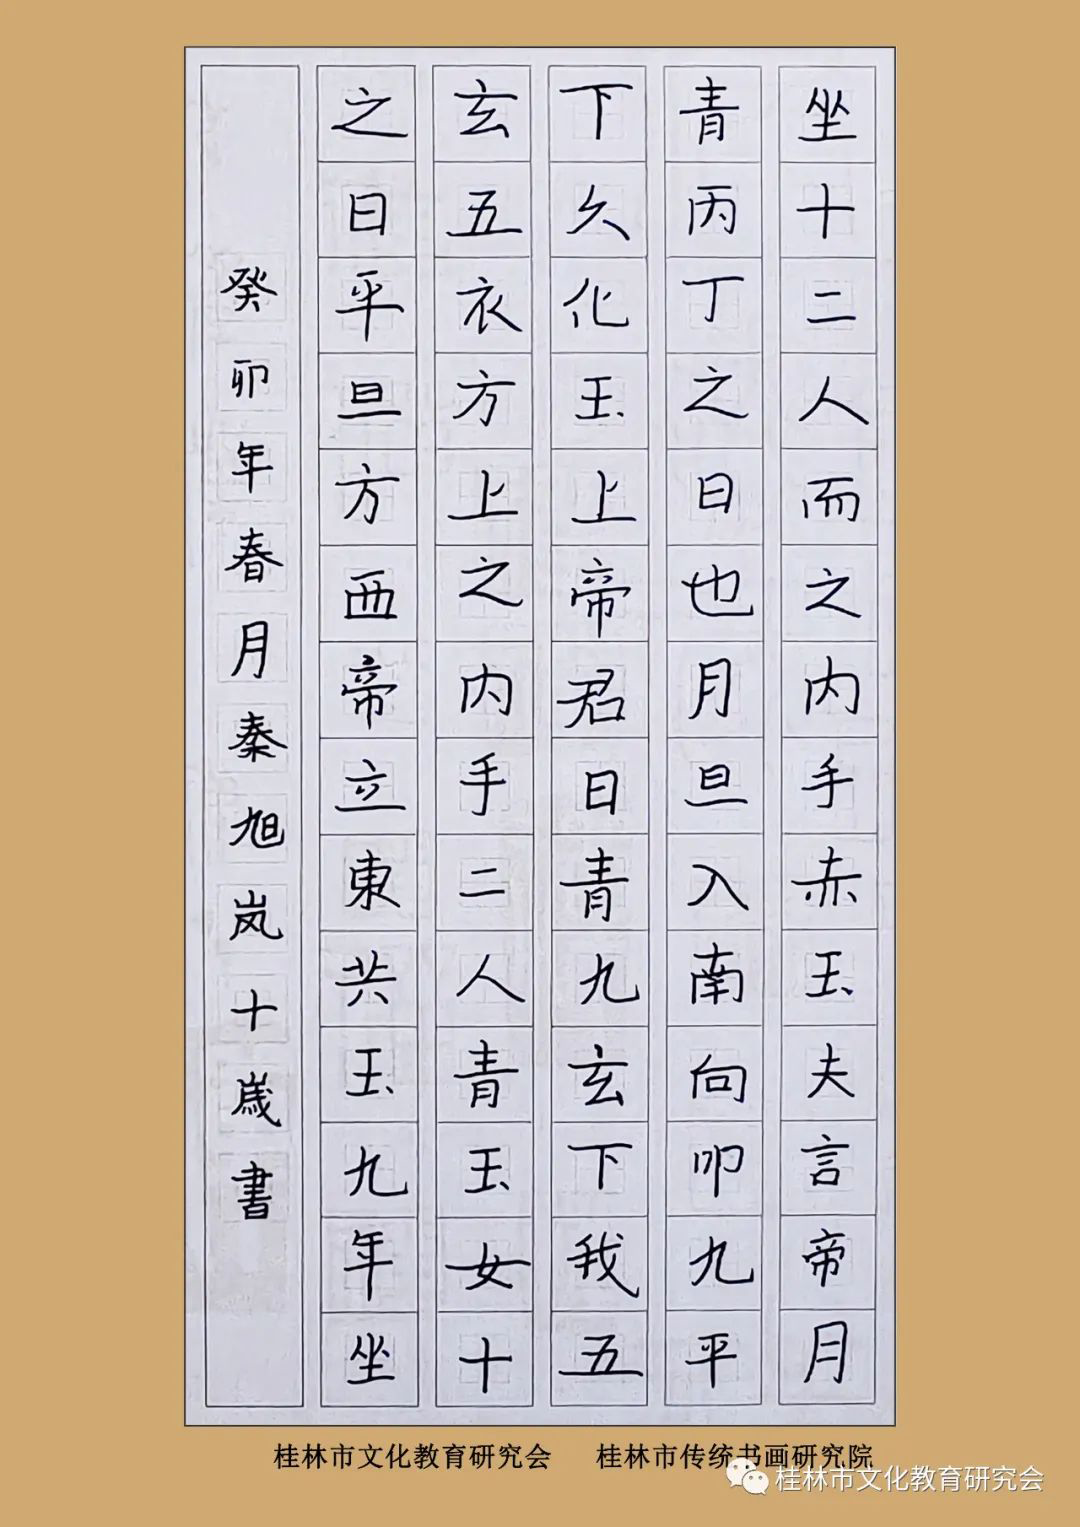 坐十二人而之内手赤玉夫言帝月
青丙丁之日也月旦入南向卯九平
下久化玉上帝君日青九玄下我五
玄五衣方上之内手二人青玉女十
之日平旦方西帝立東共玉九年坐
癸卯年春月秦旭岚十歲書
桂林市文化教育研究会 桂林市传统书画研究院
桂林市文化教育研究会